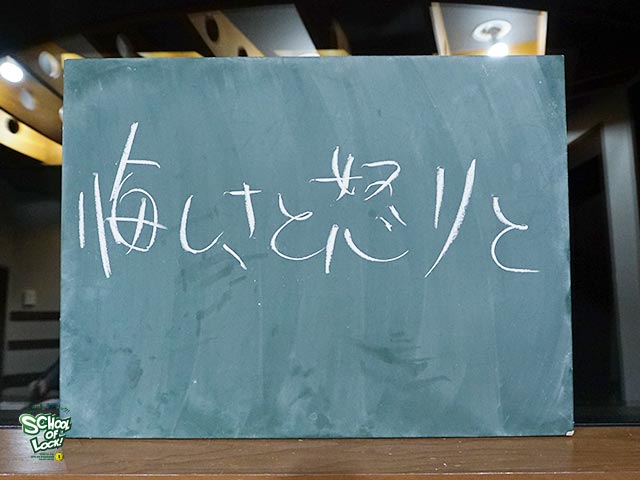 悔しさと怒りと
SCHOOL
OF
LOCK!